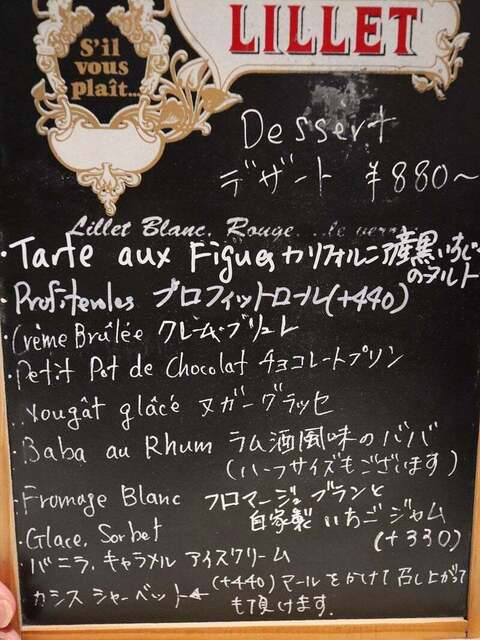 LILLET
S'il
vous
plaît...
Dessert
デザート ¥880〜
Lillet Blanc, Rouge, ...le verre
・Tarte aux Figues カリフォルニア産黒いちじく
のタルト
・Profiteroles プロフィットロール(+440)
・Crème Brûlée クレーム・ブリュレ
・Petit Pot de Chocolat チョコレートプリン
・Nougât glâcé ヌガーグラッセ
・Baba au Rhum ラム酒風味のババ
(ハーフサイズもございます)
・Fromage Blanc フロマージュブランと
自家製いちごジャム
(+330)
・Glace, Sorbet
・バニラ、キャラメル アイスクリーム
カシス シャーベット← (+440)マールをかけて召し上がって
も頂けます.